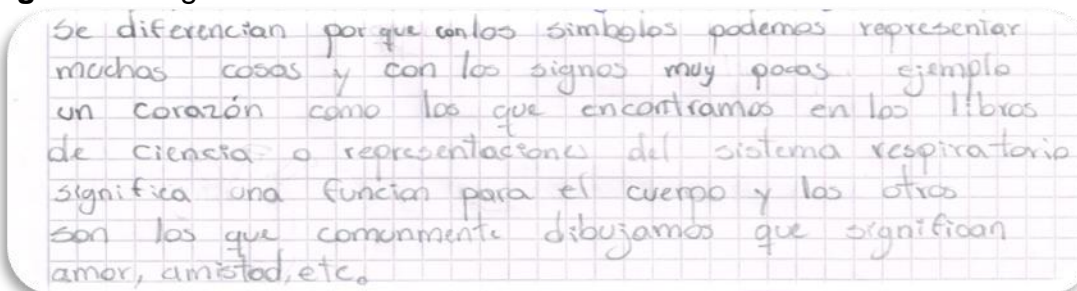 se diferencian por que con los simbolos podemos representar
muchas cosas y con los signos muy pocas ejemplo
un corazón como los que encontramos en los libros
de ciencia o representaciones del sistema respiratorio
significa una funcion para el cuerpo y los otros
son los que comunmente dibujamos que significan
amor, amistad, etc.